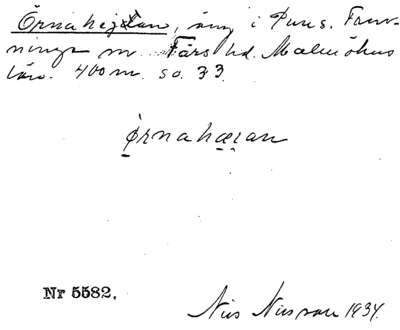 Örnahejdan, äng i Pun s. Fran-
ninge sn. Färs hd. Malmöhus
län. 400 m. so. 33.
Örnahæɪan
Nr 5582.
Nils Nilsson 1934.